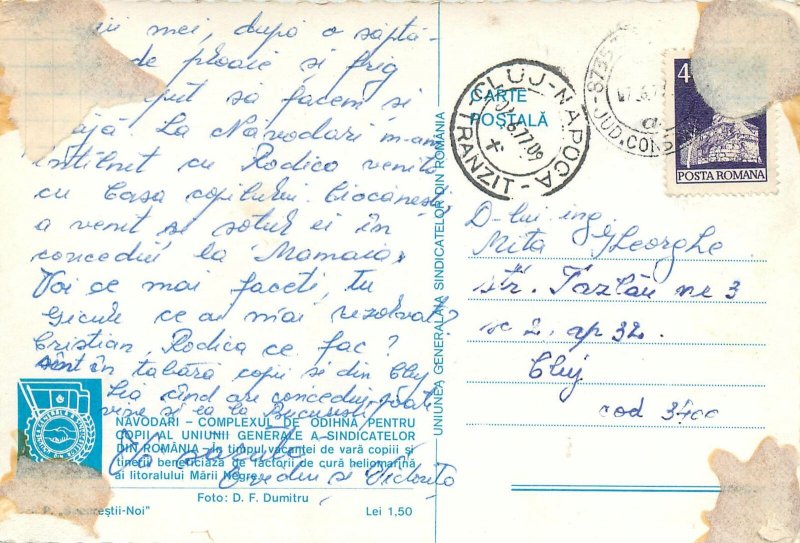 mei, după o săptă-
de ploaie si frig
să facem si
La Năvodari m-am
întîlnit cu Rodica venită
cu Casa copilului Ciocănești
a venit si soțul ei în
concediu la "Mamaia".
Voi ce mai faceti, tu
Gicule ce ai mai rezolvat?
Cristian, Rodica ce fac?
sînt în tabăra copii si din Cluj
Lia cînd are concediu, poate
vine si ea la București
Vă sărută
Ovidiu si Victorița
NĂVODARI – COMPLEXUL DE ODIHNĂ PENTRU
COPII AL UNIUNII GENERALE A SINDICATELOR
DIN ROMÂNIA – În timpul vacanței de vară copiii și
tinerii beneficiază de factorii de cură heliomarină
ai litoralului Mării Negre.
Foto: D. F. Dumitru
"Bucureștii-Noi"
Lei 1,50
UNIUNEA GENERALĂ A SINDICATELOR DIN ROMÂNIA
CARTE
POȘTALĂ
CLUJ-NAPOCA
TRANZIT
8735
JUD. CON
4
POSTA ROMANA
D-lui ing.
Mita Gheorghe
str. Tazlău nr 3
sc 2. ap 32.
Cluj
cod 3400